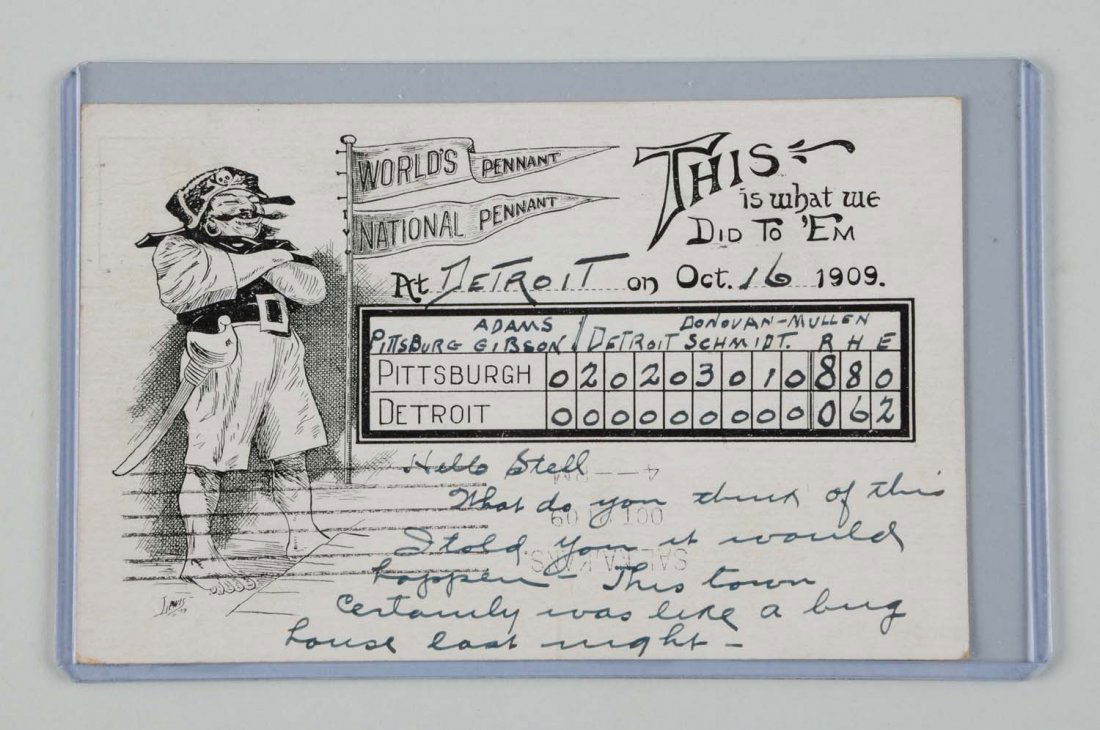 WORLD'S PENNANT
NATIONAL PENNANT
THIS
is what we
DID TO 'EM
At DETROIT on Oct. 16 1909.
ADAMS DONOVAN-MULLEN
PITTSBURG GIBSON / DETROIT SCHMIDT. R H E
PITTSBURGH 0 2 0 2 0 3 0 1 0 8 8 0
DETROIT 0 0 0 0 0 0 0 0 0 0 6 2
Hello Stell
What do you think of this
I told you it would
happen - This town
Certainly was like a bug
house last night -